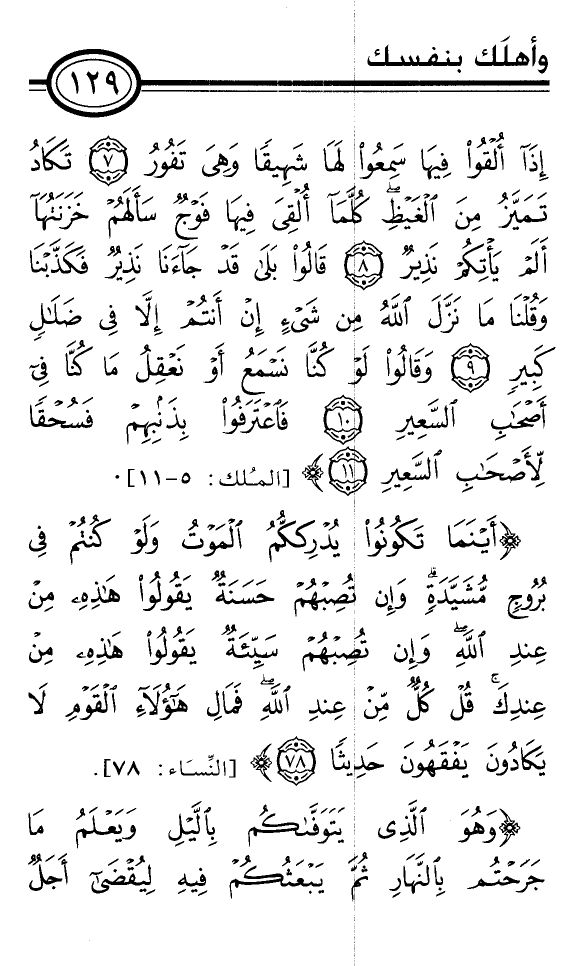 وأهلَك بنفسك
١٢٩
إِذَآ أُلۡقُواْ فِيهَا سَمِعُواْ لَهَا شَهِيقٗا وَهِيَ تَفُورُ ٧ تَكَادُ
تَمَيَّزُ مِنَ ٱلۡغَيۡظِۖ كُلَّمَآ أُلۡقِيَ فِيهَا فَوۡجٞ سَأَلَهُمۡ خَزَنَتُهَآ
أَلَمۡ يَأۡتِكُمۡ نَذِيرٞ ٨ قَالُواْ بَلَىٰ قَدۡ جَآءَنَا نَذِيرٞ فَكَذَّبۡنَا
وَقُلۡنَا مَا نَزَّلَ ٱللَّهُ مِن شَيۡءٍ إِنۡ أَنتُمۡ إِلَّا فِي ضَلَٰلٖ
كَبِيرٖ ٩ وَقَالُواْ لَوۡ كُنَّا نَسۡمَعُ أَوۡ نَعۡقِلُ مَا كُنَّا فِيٓ
أَصۡحَٰبِ ٱلسَّعِيرِ ١٠ فَٱعۡتَرَفُواْ بِذَنۢبِهِمۡ فَسُحۡقٗا
لِّأَصۡحَٰبِ ٱلسَّعِيرِ ١١﴾ [المُلك: ٥-١١].
﴿أَيۡنَمَا تَكُونُواْ يُدۡرِككُّمُ ٱلۡمَوۡتُ وَلَوۡ كُنتُمۡ فِي
بُرُوجٖ مُّشَيَّدَةٖۗ وَإِن تُصِبۡهُمۡ حَسَنَةٞ يَقُولُواْ هَٰذِهِۦ مِنۡ
عِندِ ٱللَّهِۖ وَإِن تُصِبۡهُمۡ سَيِّئَةٞ يَقُولُواْ هَٰذِهِۦ مِنۡ
عِندِكَۚ قُلۡ كُلّٞ مِّنۡ عِندِ ٱللَّهِۖ فَمَالِ هَٰٓؤُلَآءِ ٱلۡقَوۡمِ لَا
يَكَادُونَ يَفۡقَهُونَ حَدِيثٗا ٧٨﴾ [النِّسَاء: ٧٨].
﴿وَهُوَ ٱلَّذِي يَتَوَفَّىٰكُم بِٱلَّيۡلِ وَيَعۡلَمُ مَا
جَرَحۡتُم بِٱلنَّهَارِ ثُمَّ يَبۡعَثُكُمۡ فِيهِ لِيُقۡضَىٰٓ أَجَلٞ